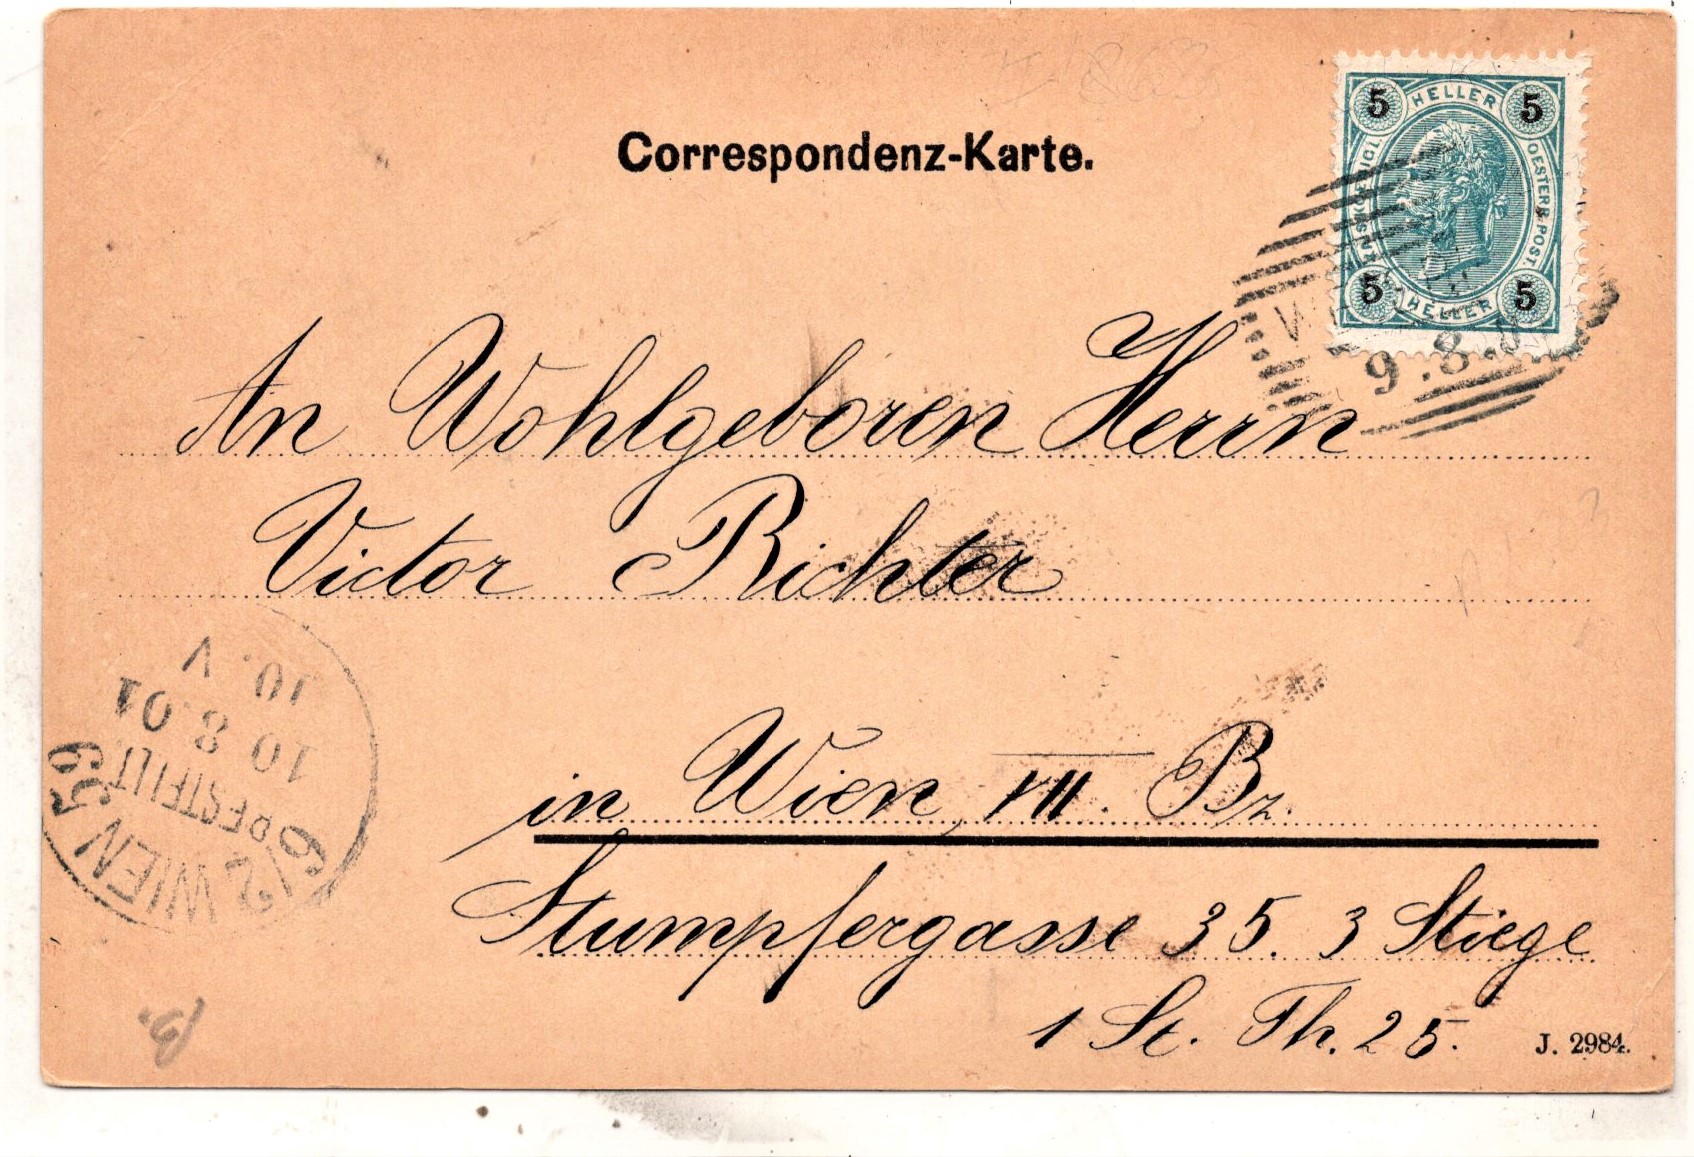 Correspondenz-Karte.
5 HELLER 5
KAIS. KÖNIGL. OESTERR. POST.
5 HELLER 5
9.8.
An Wohlgeboren Herrn
Victor Richter
in Wien, VII. Bz.
Stumpfergasse 35. 3 Stiege
1 St. Th. 25.
J. 2984.
6/2 WIEN 59
BESTELLT
10 8 01
10. V